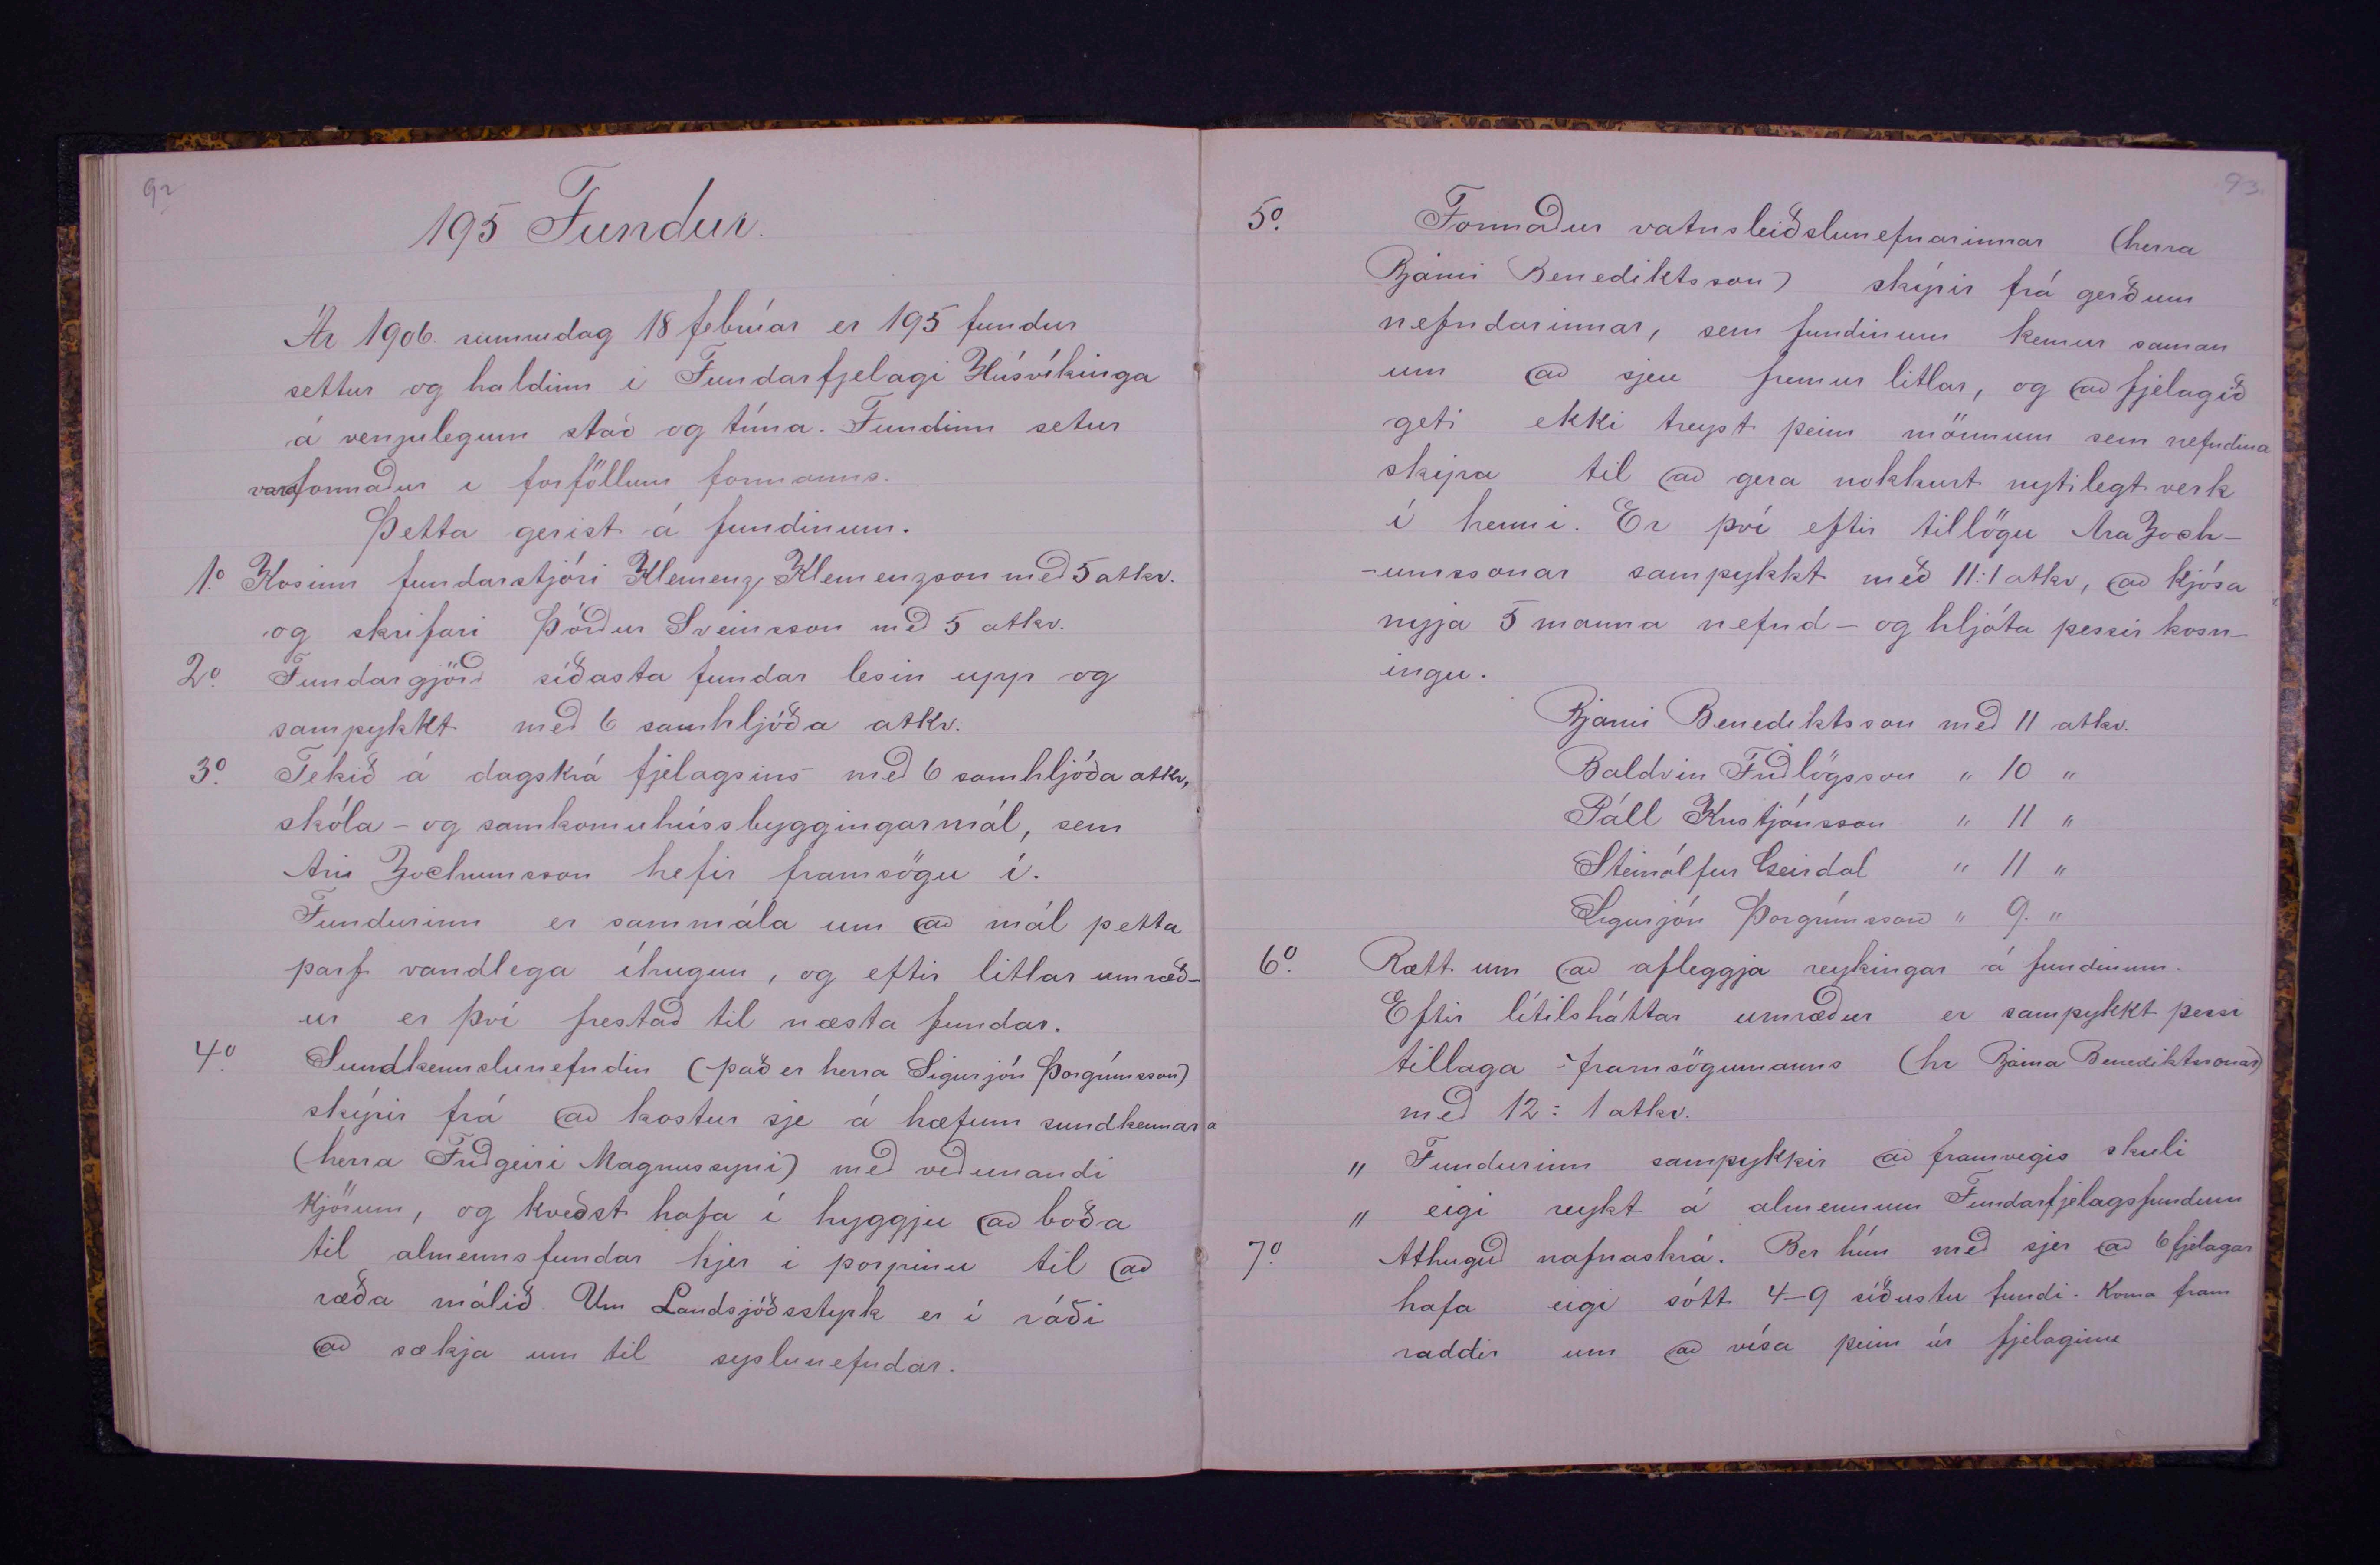 92
195 Fundur.
Ár 1906. sunnudag 18 febrúar er 195 fundur
settur og haldinn i Fundarfjelagi Húsvíkinga
á venjulegum stað og tíma. Fundinn setur
varaformaður i forföllum formanns.
Þetta gerist á fundinum.
1.o Kosinn fundarstjóri Klemenz Klemenzson með 5 atkv.
og skrifari Þórður Sveinsson með 5 atkv.
2.o Fundargjörð síðasta fundar lesin upp og
samþykkt með 6 samhljóða atkv.
3.o Tekið á dagskrá fjelagsins með 6 samhljóða atkv,
skóla - og samkomuhússbyggingarmál, sem
Ari Jochumsson hefir framsögu í.
Fundurinn er sammála um að mál þetta
þarf vandlega íhugun, og eftir litlar umræð-
ur er því frestað til næsta fundar.
4.o Sundkennslunefndin (það er herra Sigurjón Þorgrímsson)
skýrir frá að kostur sje á hæfum sundkennara
(herra Friðgeiri Magnussyni) með viðunandi
kjörum, og kveðst hafa í hyggju að boða
til almennsfundar hjer i þorpinu til að
ræða málið Um Landsjóðsstyrk er í ráði
að sækja um til syslunefndar.
93.
5.o Formaður vatnsleiðslunefnarinnar (herra
Bjarni Benediktsson) skýrir frá gerðum
nefndarinnar, sem fundinum kemur saman
um að sjeu fremur litlar, og að fjelagið
geti ekki treyst þeim mönnum sem nefndina
skipa til að gera nokkurt nytilegt verk
í henni. Er því eftir tillögu Ara Joch-
-umssonar samþykkt með 11:1 atkv, að kjósa
nyja 5 manna nefnd - og hljóta þessir kosn-
ingu.
Bjarni Benediktsson með 11 atkv.
Baldvin Friðlögsson " 10 "
Páll Kristjánsson " 11 "
Steinólfur Geirdal " 11 "
Sigurjón Þorgrímsson " 9. "
6.o Rætt um að afleggja reykingar á fundinum.
Eftir lítilsháttar umræður er samþykkt þessi
tillaga framsögumanns (hr Bjarna Benediktsonar)
með 12 : 1 atkv.
" Fundurinn samþykkir að framvegis skuli
" eigi reykt á almennum Fundarfjelagsfundum
7.o Athuguð nafnaskrá. Ber hún með sjer að 6 fjelagar
hafa eigi sótt 4-9 síðustu fundi. Koma fram
raddir um að vísa þeim úr fjelaginu